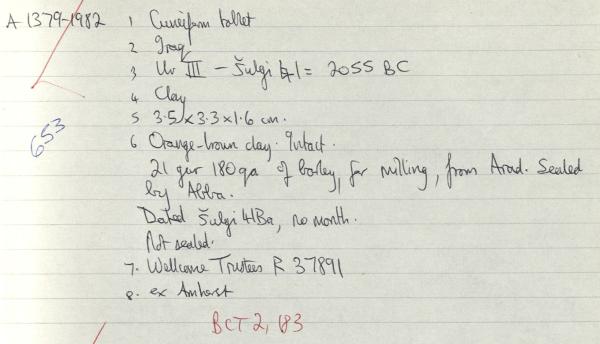 A 1379-1982
1 Cuneiform tablet
2 Iraq
3 Ur III - Šulgi 41 = 2055 BC
4 Clay
5 3.5 x 3.3 x 1.6 cm.
653
6 Orange-brown clay. Intact.
21 gur 180 qa of barley, for milling, from Arad. Sealed
by Abba.
Dated Šulgi 41Ba, no month.
Not sealed.
7. Wellcome Trustees R 37891
8. ex Amherst
BCT 2, 183